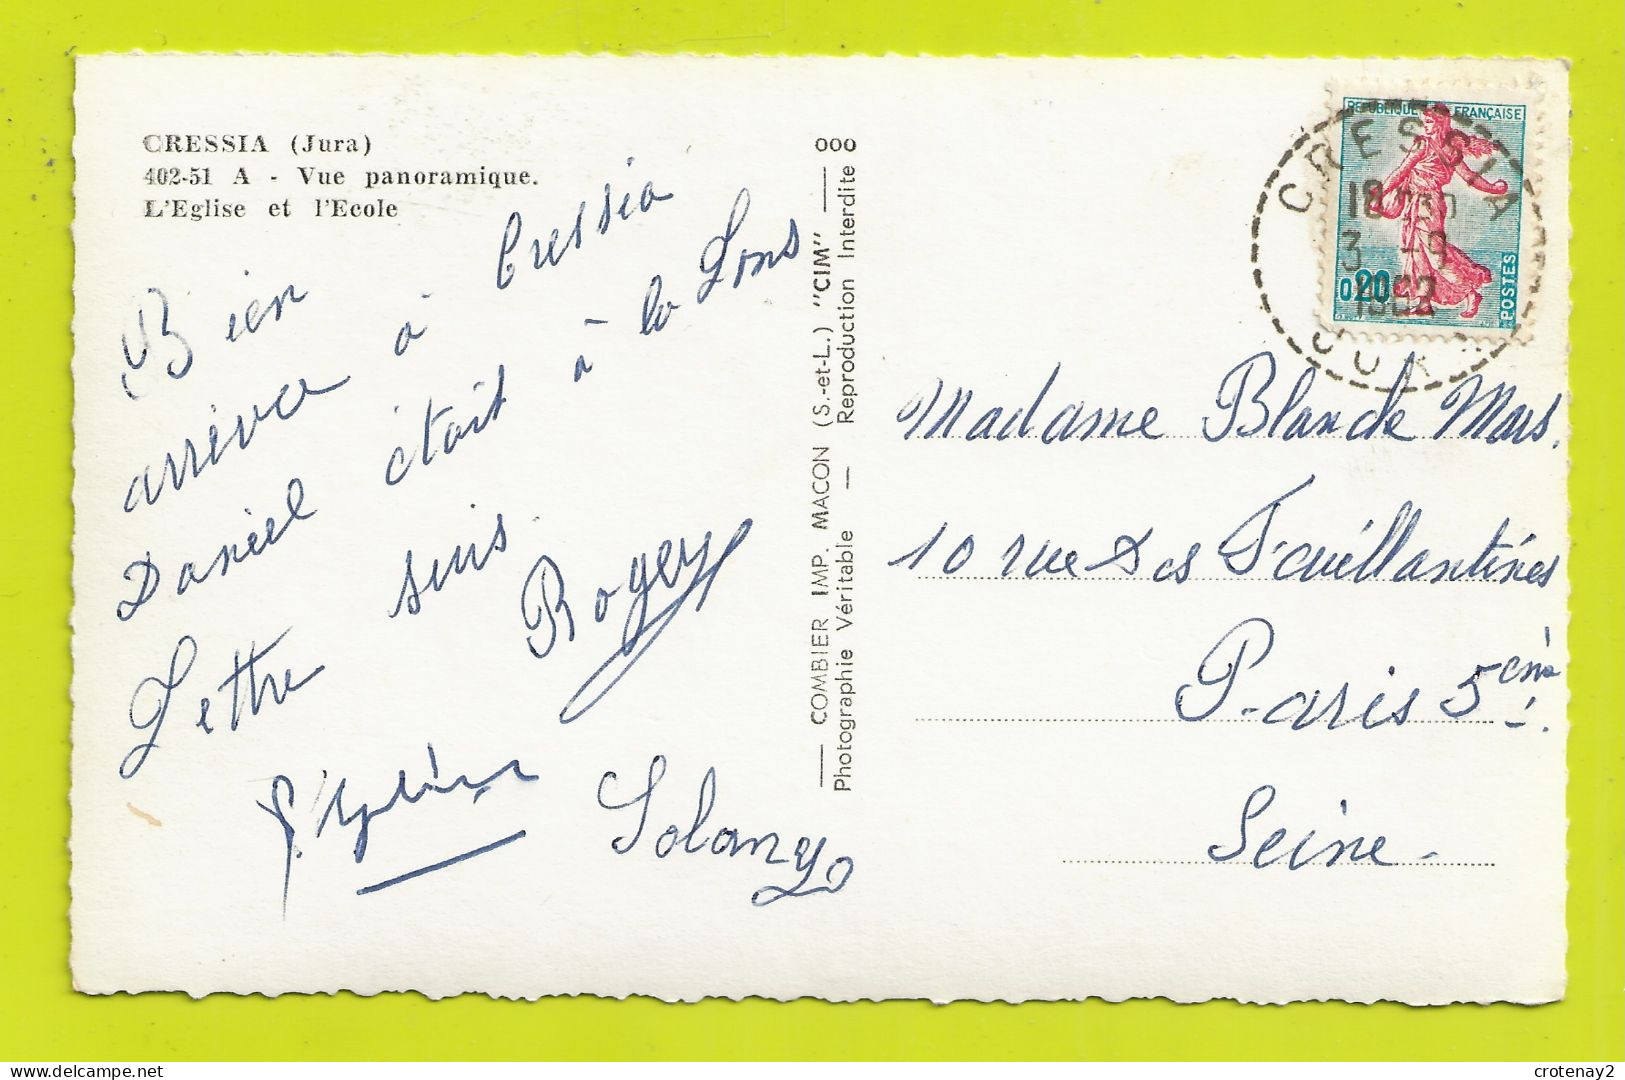 CRESSIA (Jura)
402-51 A - Vue panoramique.
L'Eglise et l'Ecole
Bien
arrivé à Cressia
Daniel était à la Lons
Lettre suis
Roger
Solange
COMBIER IMP. MACON (S.-et-L.) "CIM"
Photographie Véritable — Reproduction Interdite
000
REPUBLIQUE FRANÇAISE
0,20
POSTES
CRESSIA
18 H30
3 -9
1962
JURA
Madame Blanche Mars.
10 rue des Feuillantines
Paris 5ème.
Seine.
crotenay2